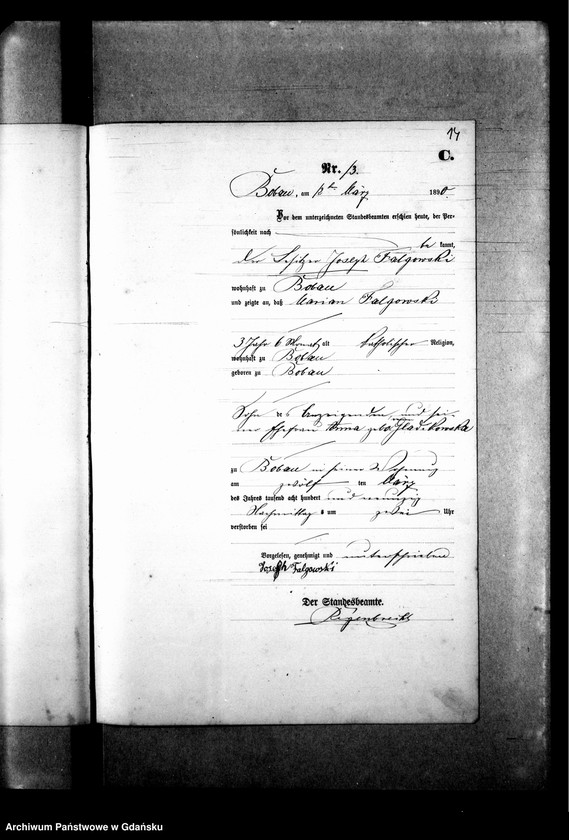 14
C.
Nr. 13.
Bobau, am 13ten März 1890.
Vor dem unterzeichneten Standesbeamten erschien heute, der Per-
sönlichkeit nach
be kannt,
der Besitzer Joseph Falgowski
wohnhaft zu Bobau
und zeigte an, daß Marian Falgowski
3 Jahr 6 Monat alt katholischer Religion,
wohnhaft zu Bobau
geboren zu Bobau
Sohn des Anzeigenden und sei-
ner Ehefrau Anna geb.
zu Bobau in seiner Wohnung
am zwölf ten März
des Jahres tausend acht hundert und neunzig
Nachmittags um zwei Uhr
verstorben sei
Vorgelesen, genehmigt und unterschrieben
Joseph Falgowski
Der Standesbeamte.
Regenbrecht
Archiwum Państwowe w Gdańsku